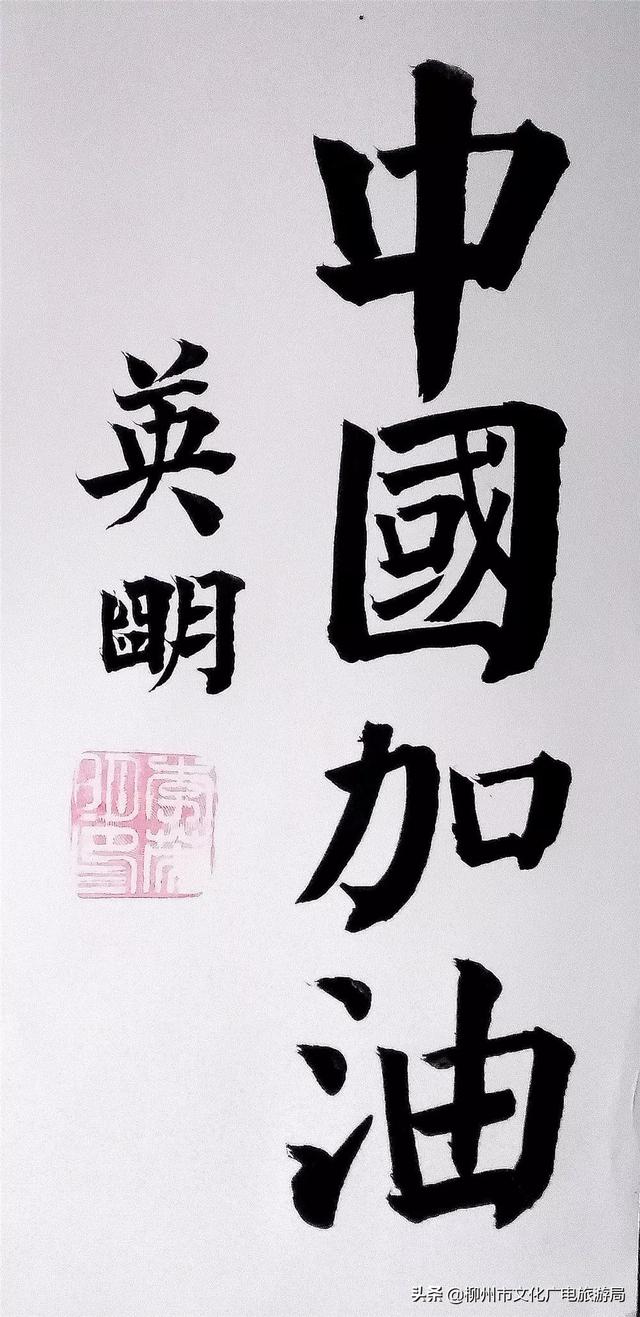 中國加油
英明
头条 @柳州市文化广电旅游局